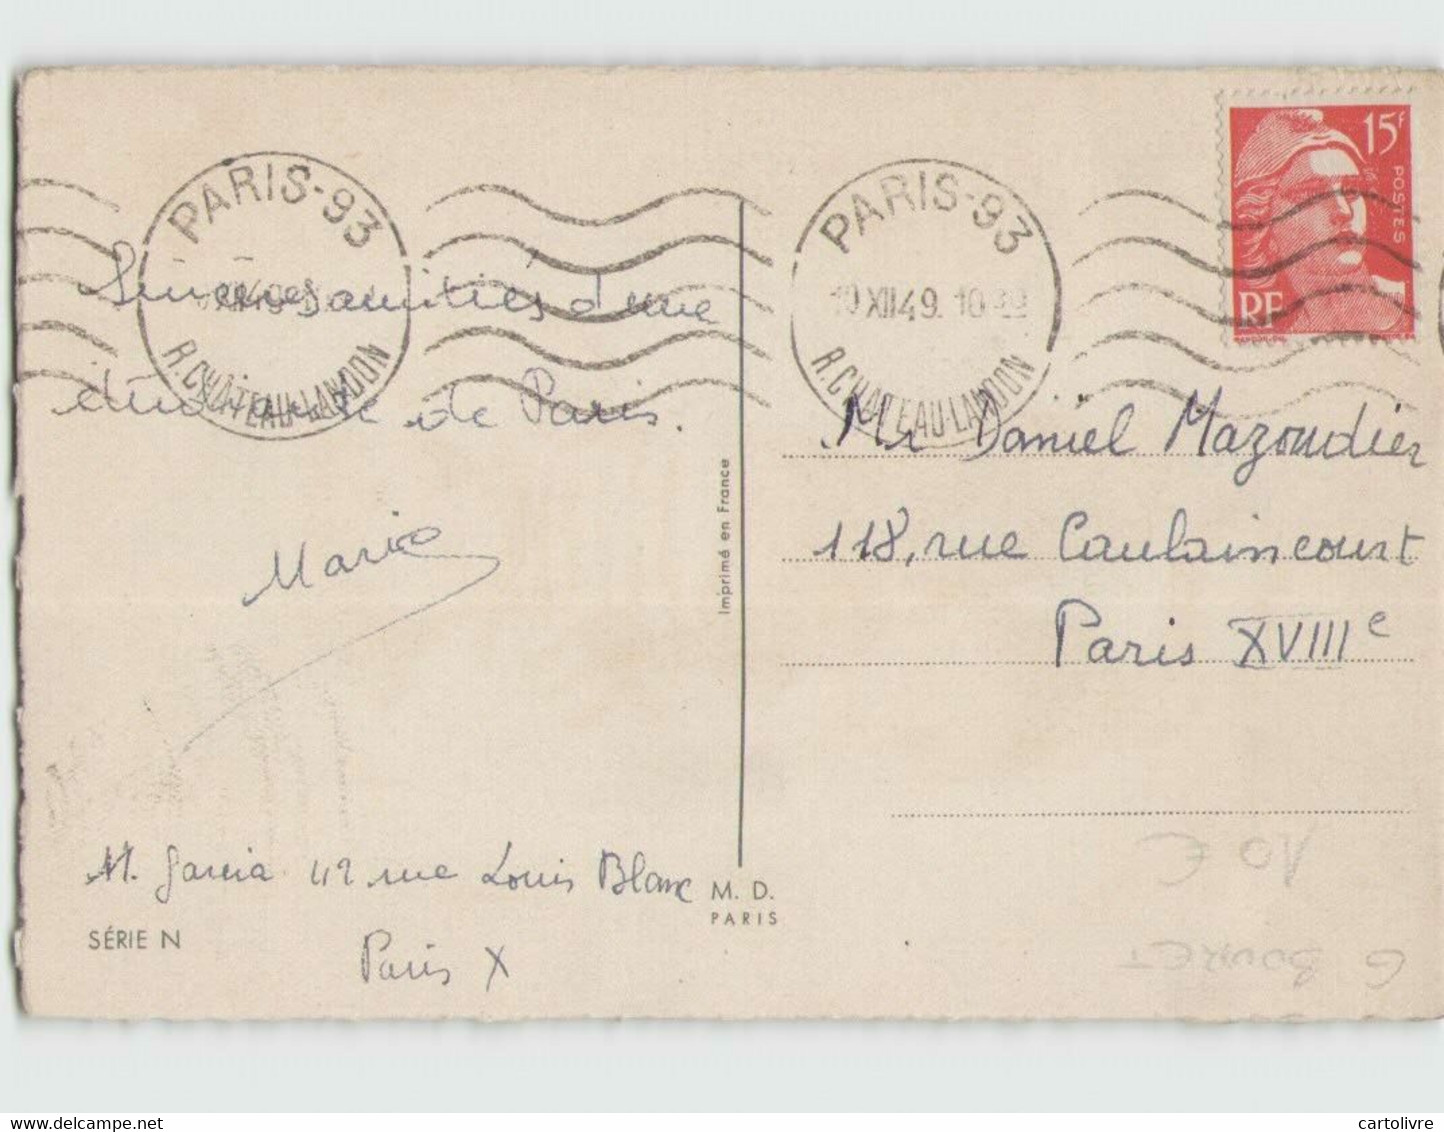 PARIS-93
R. CHÂTEAU-LANDON
PARIS-93
10 XII 49. 10
R. CHATEAU-LANDON
15F
POSTES
RF
Sincères amitiés d'une
étudiante de Paris.
Maria
M. Garcia 42 rue Louis Blanc
Paris X
SÉRIE N
Imprimé en France
M. D.
PARIS
Mr Daniel Mazoudier
118, rue Caulaincourt
Paris XVIIIe
10 €
G BOURET
cartolivre